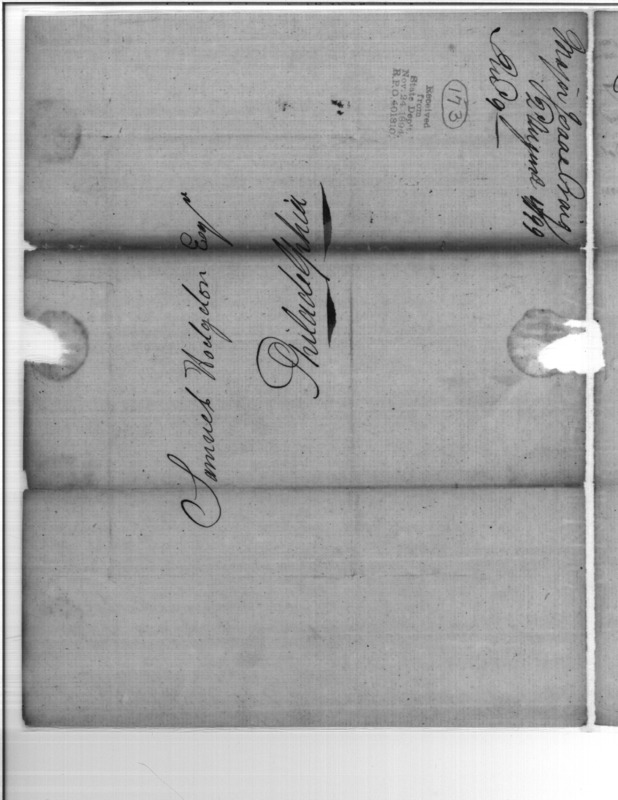 Majr Isaac Craig
12 August 1799
173
Received
from
State Dept.
Nov. 24 1894,
R.P.O 401810
Samuel Hodgdon Esqr
Philadelphia